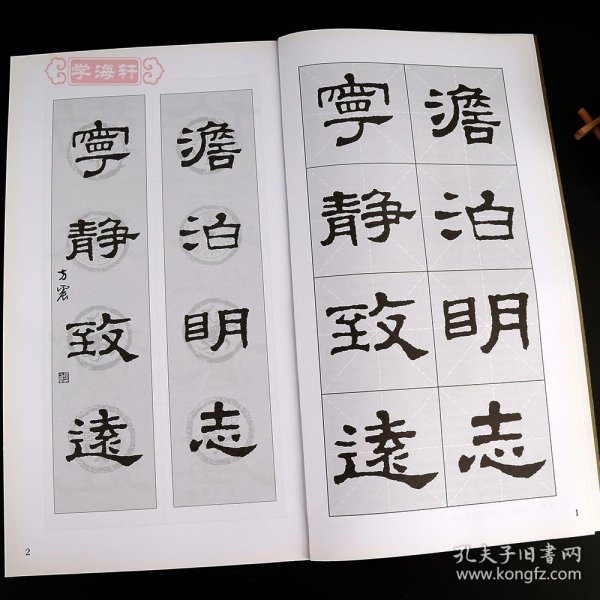 学海轩
澹泊明志
寧静致遠
澹泊明志
寧静致遠
方震
1
2
孔夫子旧书网
www.kongfz.com